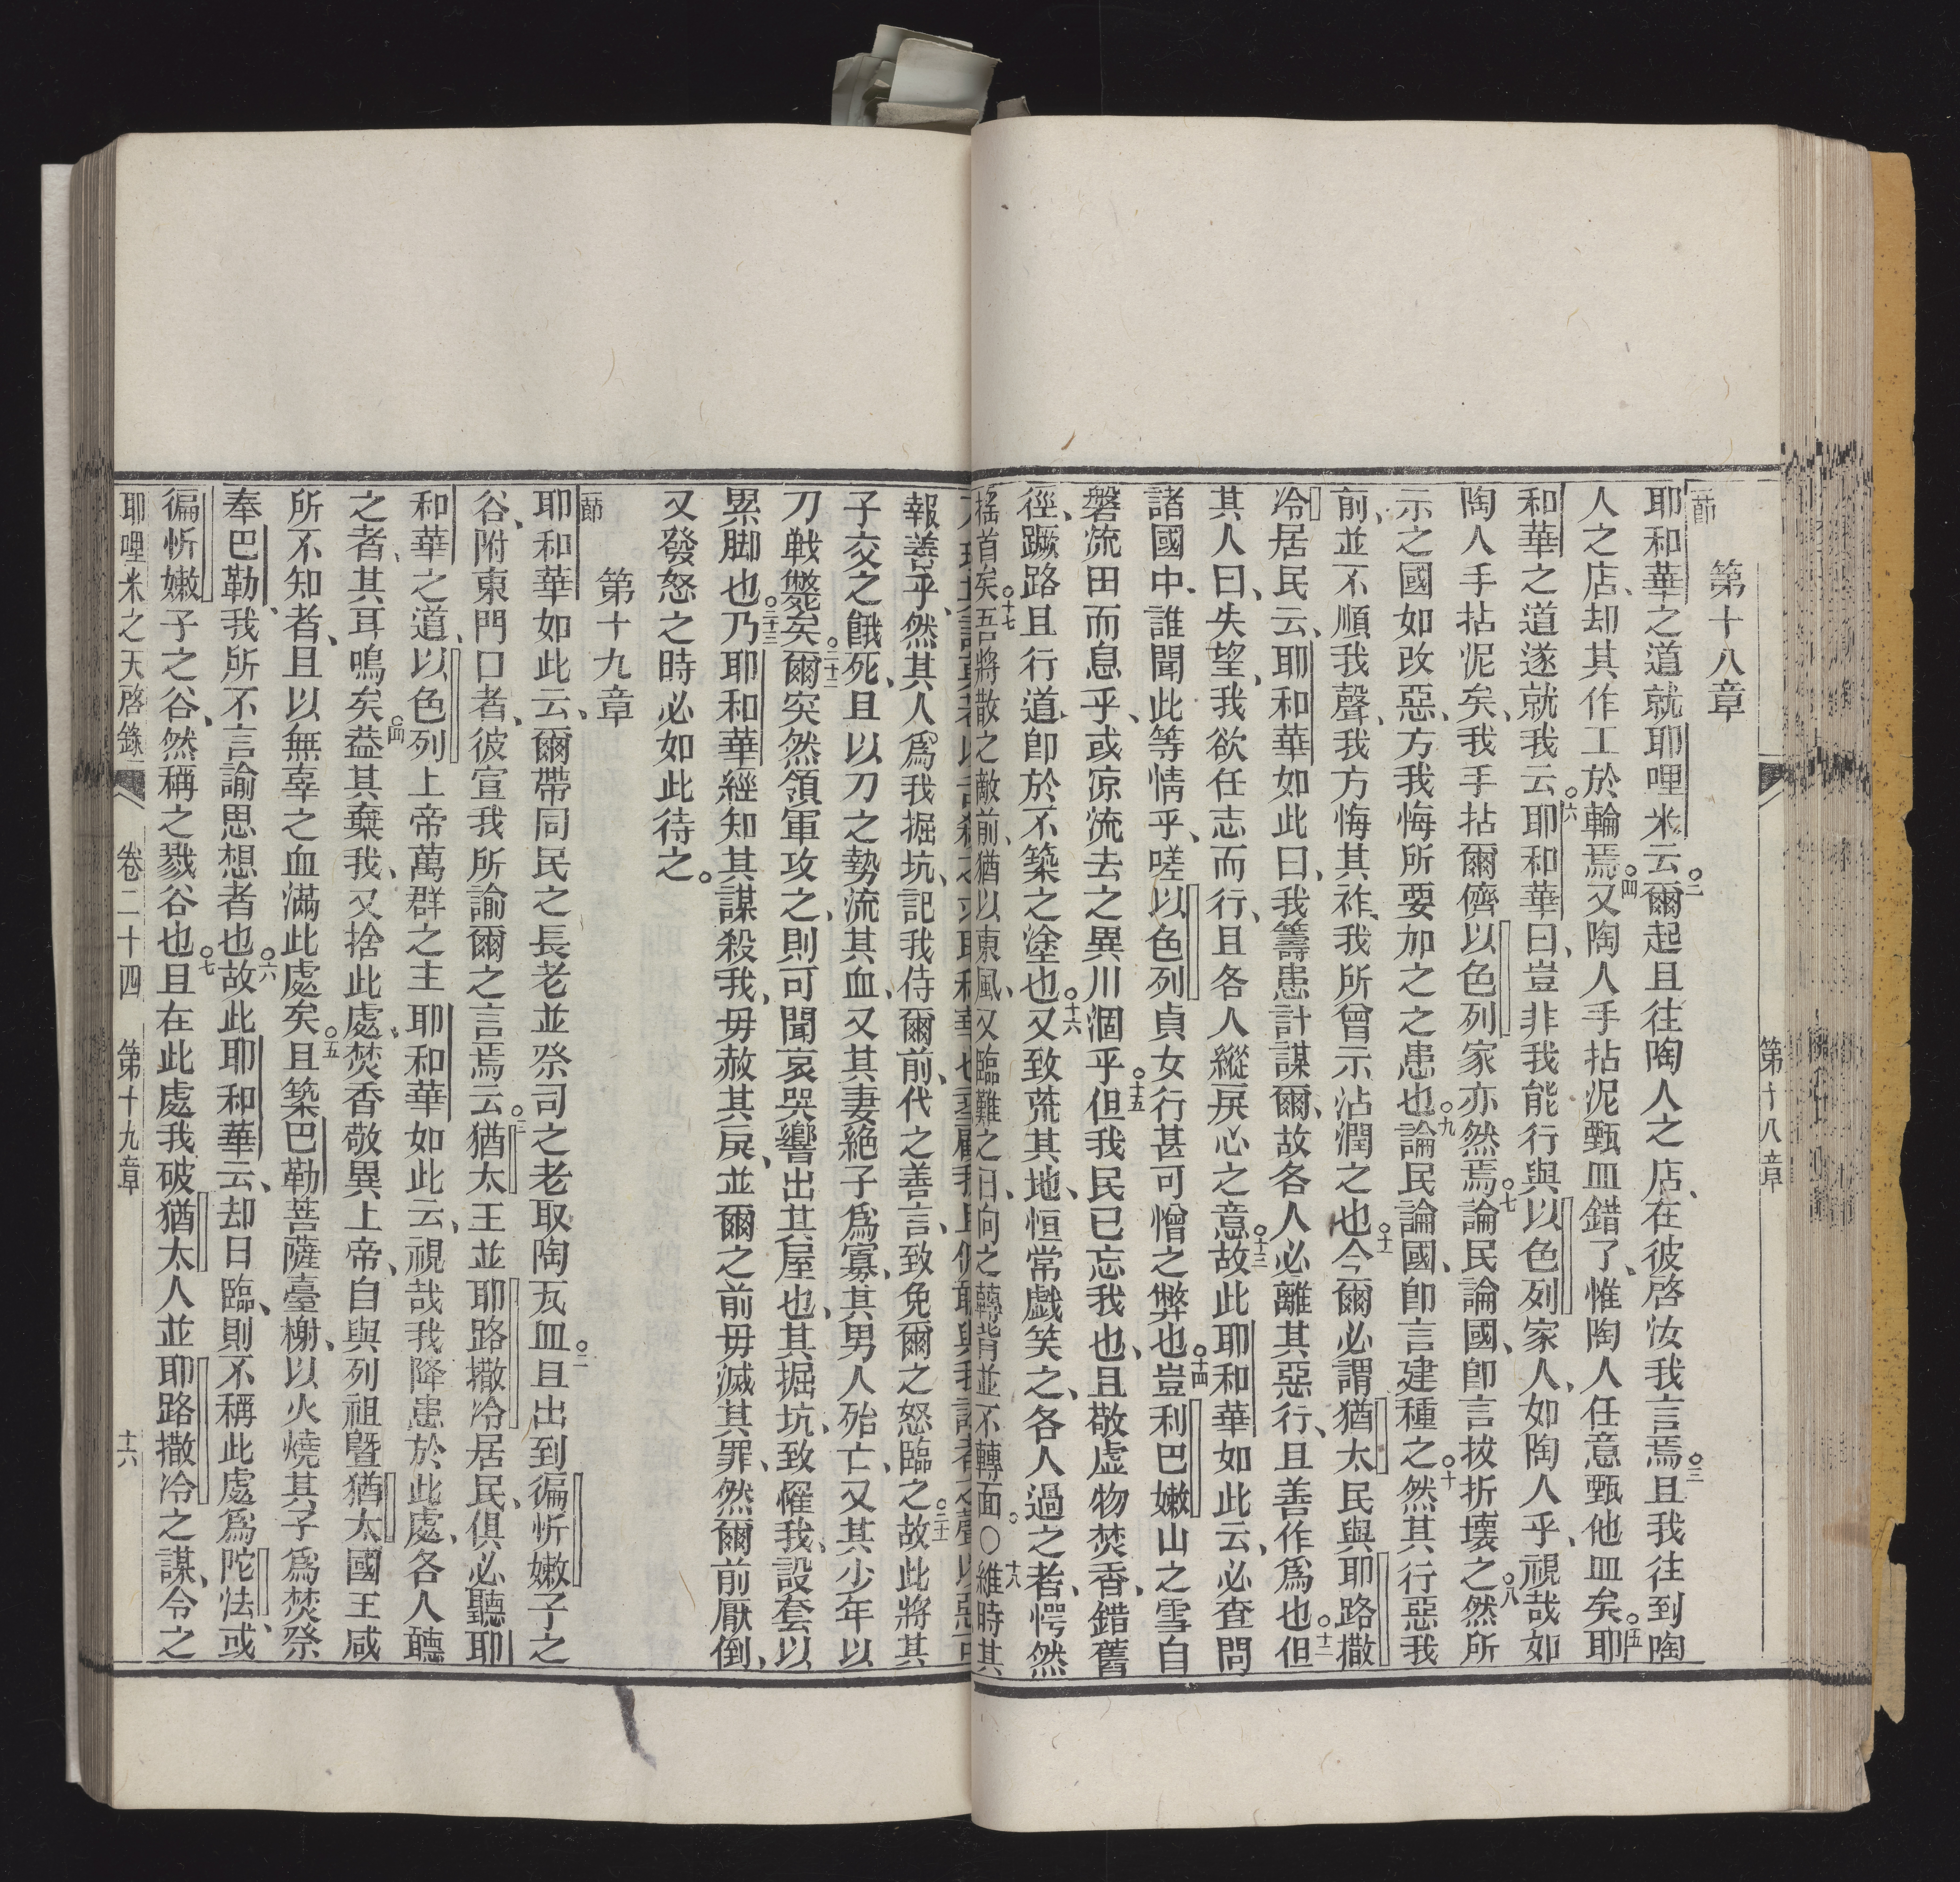 第十八章
第十八章
節 耶和華之道就耶哩米云。二爾起且往陶人之店、在彼啓汝我言焉。三且我往到陶
人之店、却其作工於輪焉。四又陶人手拈泥甄皿錯了、惟陶人任意甄他皿矣。五耶
和華之道遂就我云。六耶和華曰、豈非我能行與以色列家人、如陶人乎、視哉如
陶人手拈泥矣、我手拈爾儕以色列家亦然焉。七論民論國、卽言拔折壞之。八然所
示之國如改惡、方我悔所要加之之患也。九論民論國、卽言建種之。十然其行惡我
前、並不順我聲、我方悔其祚、我所曾示沾潤之也。十一今爾必謂猶太民與耶路撒
冷居民云、耶和華如此曰、我籌患計謀爾、故各人必離其惡行、且善作爲也。十二但
其人曰、失望、我欲任志而行、且各人縱戾心之意。十三故此耶和華如此云、必查問
諸國中、誰聞此等情乎、嗟以色列貞女行甚可憎之弊也。十四豈利巴嫩山之雪自
磐流田而息乎、或凉流去之異川涸乎。十五但我民已忘我也、且敬虛物焚香、錯舊
徑、蹶路且行道、卽於不築之塗也。十六又致荒其地、恒常戱笑之、各人過之者、愕然
搖首矣。十七吾將散之敵前、猶以東風、又臨難之日、向之轉背並不轉面。○十八維時其
報善乎、然其人爲我掘坑、記我侍爾前、代之善言、致免爾之怒臨之。二十一故此將其
子交之餓死、且以刀之勢流其血、又其妻絶子爲寡、其男人殆亡、又其少年以
刀戰斃矣。二十二爾突然領軍攻之、則可聞哀哭響出其屋也、其掘坑、致罹我、設套以
累脚也。二十三乃耶和華經知其謀殺我、毋赦其戾、並爾之前毋滅其罪、然爾前厭倒、
又發怒之時必如此待之。
第十九章
節 耶和華如此云、爾帶同民之長老並祭司之老取陶瓦皿。二且出到徧忻嫩子之
谷、附東門口者、彼宣我所諭爾之言焉云。三猶太王並耶路撒冷居民、俱必聽耶
和華之道、以色列上帝萬群之主耶和華如此云、視哉我降患於此處、各人聽
之者、其耳鳴矣。四葢其棄我、又捨此處、焚香敬異上帝、自與列祖曁猶太國王咸
所不知者、且以無辜之血滿此處矣。五且築巴勒菩薩臺榭、以火燒其子爲焚祭
奉巴勒、我所不言諭思想者也。六故此耶和華云、却日臨、則不稱此處爲陀怯、或
徧忻嫩子之谷、然稱之戮谷也。七且在此處我破猶太人並耶路撒冷之謀、令之
耶哩米之天啓錄 卷二十四 第十九章 十六